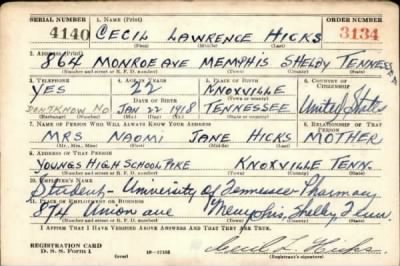 SERIAL NUMBER 1. NAME (Print) ORDER NUMBER
4140 CECIL LAWRENCE HICKS 3134
(First) (Middle) (Last)
2. ADDRESS (Print)
864 MONROE AVE MEMPHIS SHELBY TENNESSEE
(Number and street or R. F. D. number) (Town) (County) (State)
3. TELEPHONE 4. AGE IN YEARS 5. PLACE OF BIRTH 6. COUNTRY OF CITIZENSHIP
YES 22 KNOXVILLE
DATE OF BIRTH (Town or county)
DONT KNOW NO JAN 22 1918 TENNESSEE United States
(Exchange) (Number) (Mo.) (Day) (Yr.) (State or country)
7. NAME OF PERSON WHO WILL ALWAYS KNOW YOUR ADDRESS 8. RELATIONSHIP OF THAT PERSON
MRS NAOMI JANE HICKS MOTHER
(Mr., Mrs., Miss) (First) (Middle) (Last)
9. ADDRESS OF THAT PERSON
YOUNGS HIGH SCHOOL PIKE KNOXVILLE TENN.
(Number and street or R. F. D. number) (Town) (County) (State)
10. EMPLOYER'S NAME
Student - University of Tennessee - Pharmacy
11. PLACE OF EMPLOYMENT OR BUSINESS
874 Union ave Memphis, Shelby Tenn.
(Number and street or R. F. D. number) (Town) (County) (State)
I AFFIRM THAT I HAVE VERIFIED ABOVE ANSWERS AND THAT THEY ARE TRUE.
REGISTRATION CARD
D. S. S. Form 1 Cecil L. Hicks
(Registrant's signature)